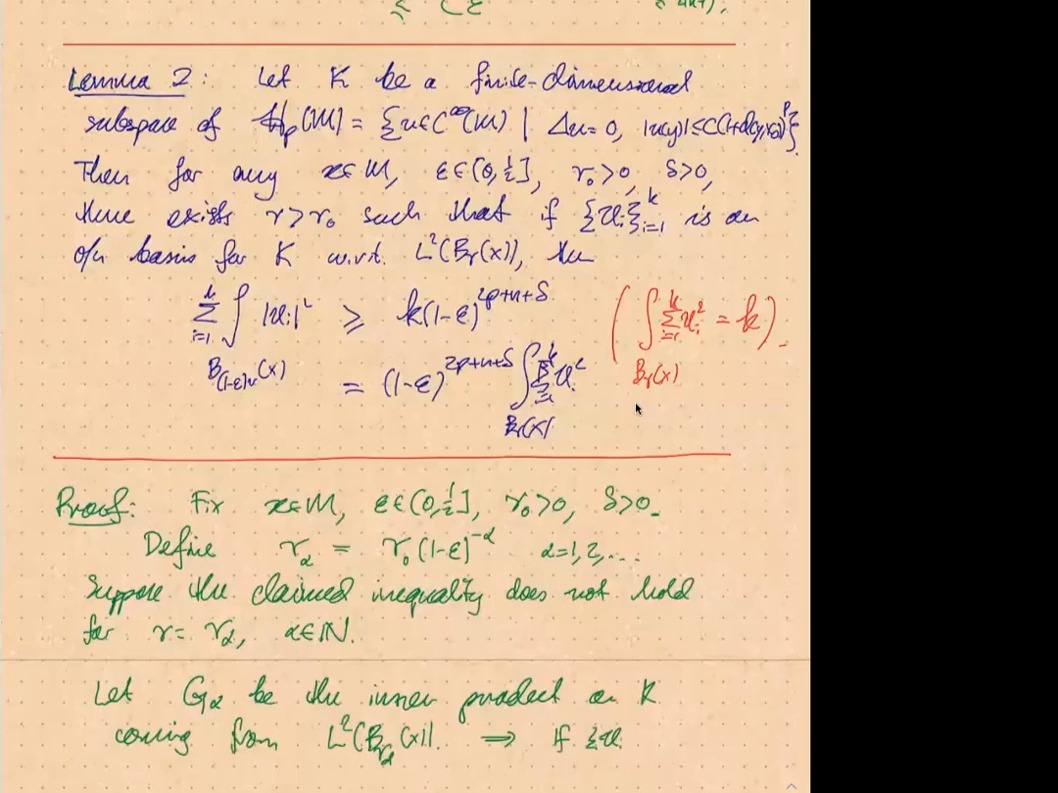 ≤ Cε
Lemma 2: Let K be a finite-dimensional
subspace of ℋₚ(M) = {u∈C^∞(M) | Δu=0, |u(y)|≤C(1+d(y,x₀))^p}.
Then for any x∈M, ε∈(0,½], r₀>0, δ>0,
there exists r>r₀ such that if {u_i}_{i=1}^k is an
o/n basis for K w.r.t. L²(B_r(x)), the
Σ_{i=1}^k ∫_{B_{(1-ε)r}(x)} |u_i|² ≥ k(1-ε)^{2p+n+δ} ( ∫_{B_r(x)} Σ_{i=1}^k u_i² = k ).
= (1-ε)^{2p+n+δ} ∫_{B_r(x)} Σ_{i=1}^k u_i²
Proof: Fix x∈M, ε∈(0,½], r₀>0, δ>0.
Define r_α = r₀(1-ε)^{-α} α=1,2,...
Suppose the claimed inequality does not hold
for r = r_α, α∈ℕ.
Let G_α be the inner product on K
coming from L²(B_{r_α}(x)). ⟹ If {u